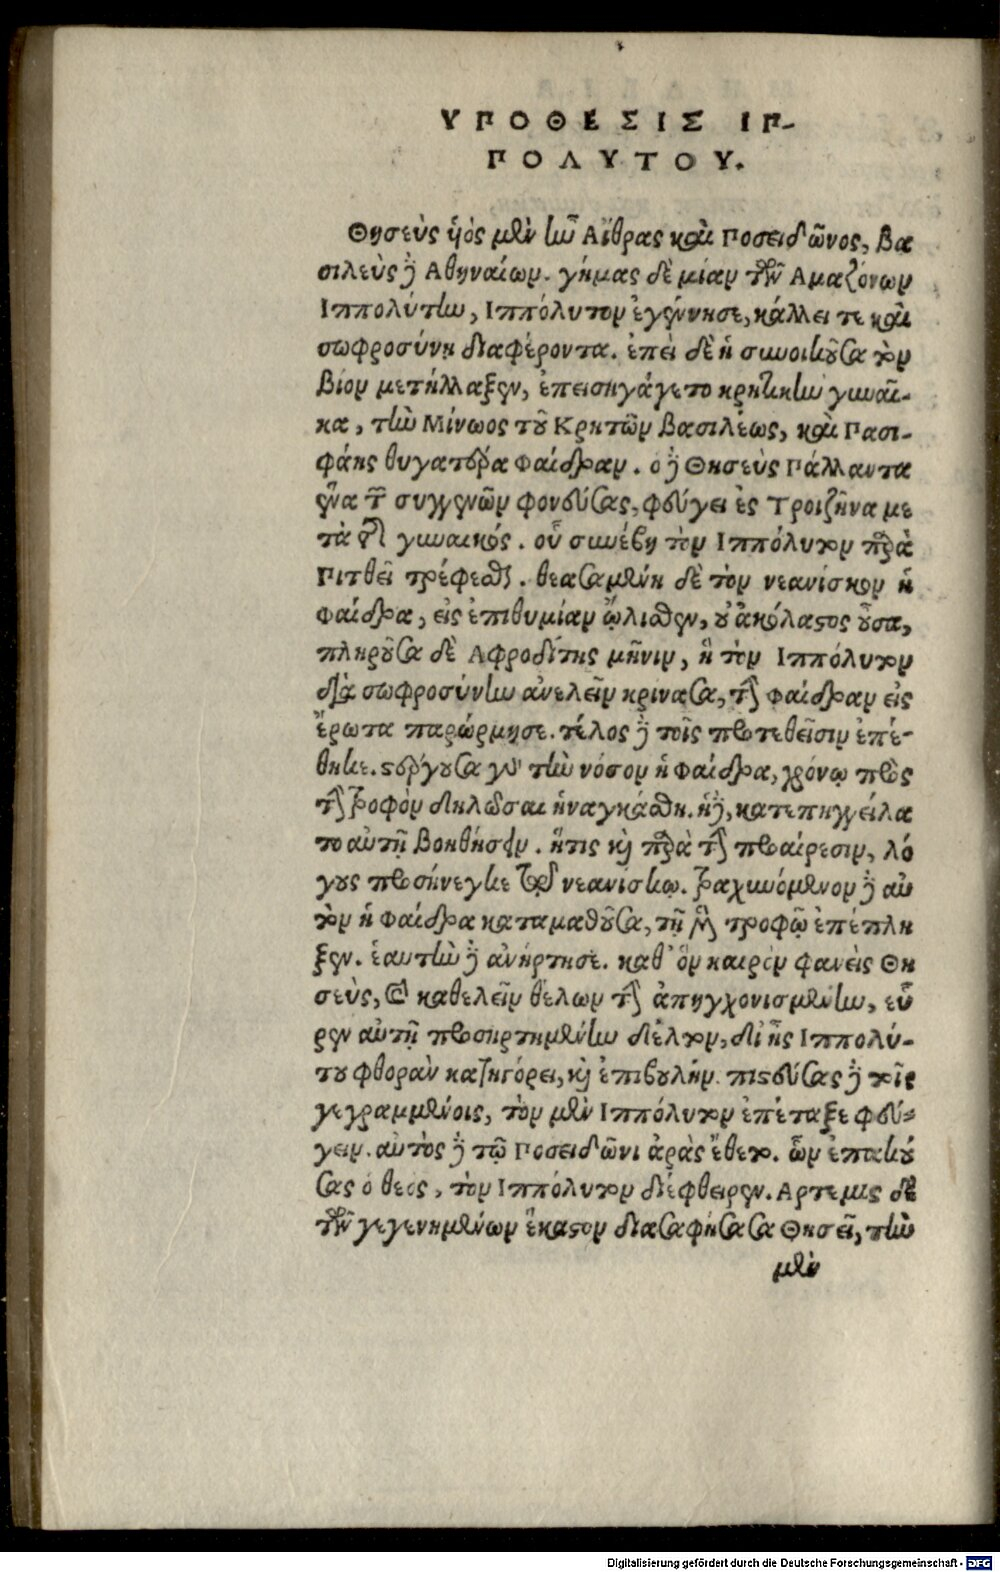 ΥΠΟΘΕΣΙΣ ΙΠ-
ΠΟΛΥΤΟΥ.
Θησεὺς ὑὸς μὲν ἦν Αἴθρας καὶ Ποσειδῶνος, βα
σιλεὺς δὲ Αθηναίων. γήμας δὲ μίαν τῶν Αμαζόνων
Ιππολύτην, Ιππόλυτον ἐγέννησε, κάλλει τε καὶ
σωφροσύνῃ διαφέροντα. ἐπεὶ δὲ ἡ συνοικοῦσα τὸν
βίον μετήλλαξεν, ἐπεισηγάγετο κρητικὴν γυναῖ-
κα, τὴν Μίνωος τοῦ Κρητῶν βασιλέως, καὶ Πασι-
φάης θυγατέρα Φαίδραν. ὁ δὲ Θησεὺς Πάλλαντα
ἕνα τῶν συγγενῶν φονεύσας, φεύγει ἐς Τροιζῆνα με
τὰ τῆς γυναικός. οὗ συνέβη τὸν Ιππόλυτον παρὰ
Πιτθεῖ τρέφεσθαι. θεασαμένη δὲ τὸν νεανίσκον ἡ
Φαίδρα, εἰς ἐπιθυμίαν ὤλισθεν, οὐ ἀκόλαστος οὖσα,
πληροῦσα δὲ Αφροδίτης μῆνιν, ἣ τὸν Ιππόλυτον
διὰ σωφροσύνην ἀνελεῖν κρίνασα, τὴν Φαίδραν εἰς
ἔρωτα παρώρμησε. τέλος δὲ τοῖς προτεθεῖσιν ἐπέ-
θηκε. στέργουσα γοῦν τὴν νόσον ἡ Φαίδρα, χρόνῳ πρὸς
τὴν τροφὸν δηλῶσαι ἠναγκάσθη. ἣ δὲ, κατεπηγγείλα
το αὐτῇ βοηθήσειν. ἥτις καὶ παρὰ τὴν προαίρεσιν, λό
γους προσήνεγκε τῷ νεανίσκῳ. τραχυνόμενον δὲ αὐ
τὸν ἡ Φαίδρα καταμαθοῦσα, τῇ μὲν τροφῷ ἐπέπλη
ξεν. ἑαυτὴν δὲ ἀνήρτησε. καθ' ὃν καιρὸν φανεὶς Θη
σεὺς, καὶ καθελεῖν θέλων τὴν ἀπηγχονισμένην, εὗ
ρεν αὐτῇ προσηρτημένην δέλτον, δι' ἧς Ιππολύ-
του φθορὰν κατηγόρει, καὶ ἐπιβουλήν. πιστεύσας δὲ τοῖς
γεγραμμένοις, τὸν μὲν Ιππόλυτον ἐπέταξε φεύ-
γειν. αὐτὸς δὲ τῷ Ποσειδῶνι ἀρὰς ἔθετο. ὧν ἐπακού
σας ὁ θεὸς, τὸν Ιππόλυτον διέφθειρεν. Αρτεμις δὲ
τῶν γεγενημένων ἕκαστον διασαφήσασα Θησεῖ, τὴν
μὲν
Digitalisierung gefördert durch die Deutsche Forschungsgemeinschaft - DFG